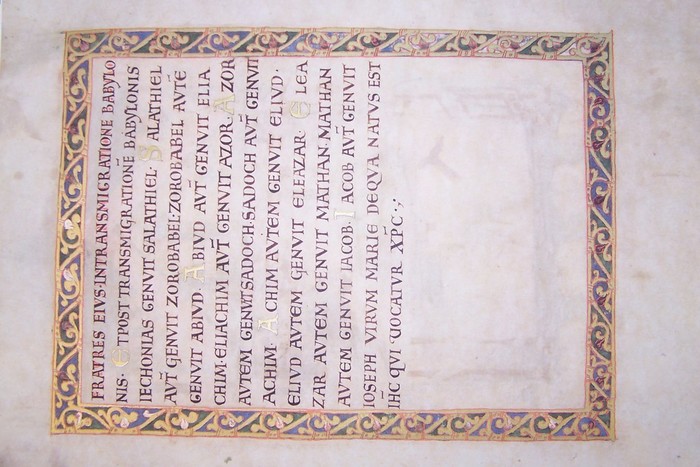 FRATRES EIVS·INTRANSMIGRATIONE BABYLO
NIS· ETPOST TRANSMIGRATIONĒ BABYLONIS
IECHONIAS GENVIT SALATHIEL· SALATHIEL
AVT̄ GENVIT ZOROBABEL·ZOROBABEL AVTĒ
GENVIT ABIVD· ABIVD AVT̄ GENVIT ELIA
CHIM·ELIACHIM AVT̄ GENVIT AZOR·AZOR
AVTEM GENVIT SADOCH·SADOCH AVT̄ GENVIT
ACHIM· ACHIM AVTEM GENVIT ELIVD·
ELIVD AVTEM GENVIT ELEAZAR· ELEA
ZAR AVTEM GENVIT MATHAN·MATHAN
AVTEM GENVIT IACOB· IACOB AVT̄ GENVIT
IOSEPH VIRVM MARIE DEQVA NATVS EST
IH̄C QVI VOCATVR XP̄C·;